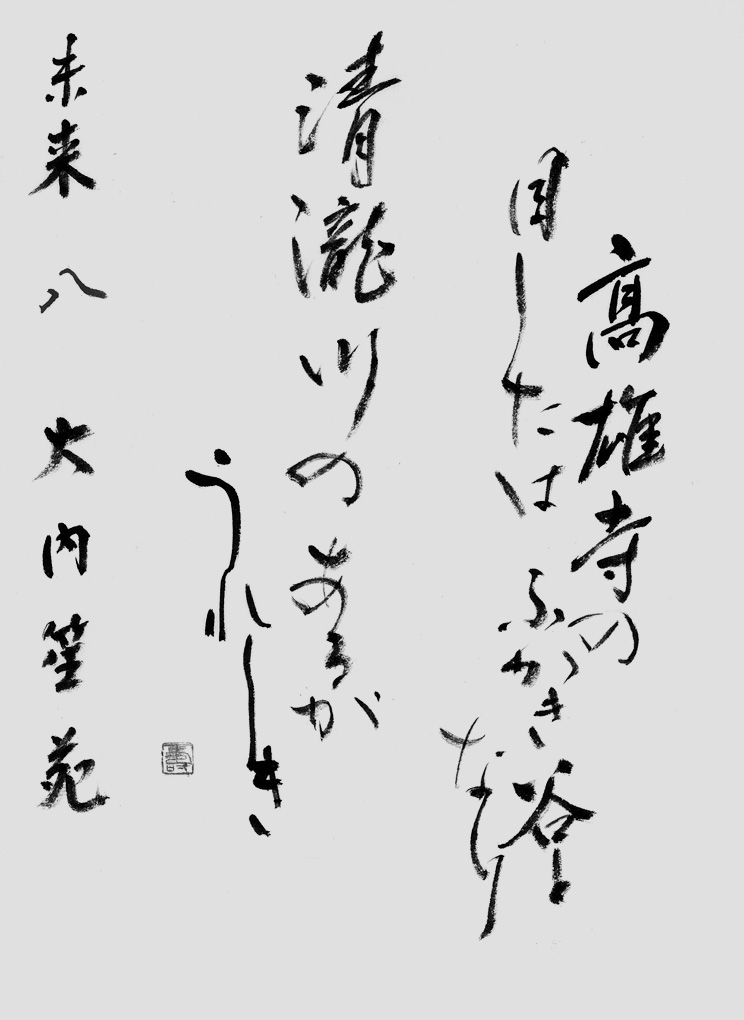 髙雄寺の
目したは ふかき谷と
なり
清瀧川のあるが
うれしき
未来 八 大内笙苑